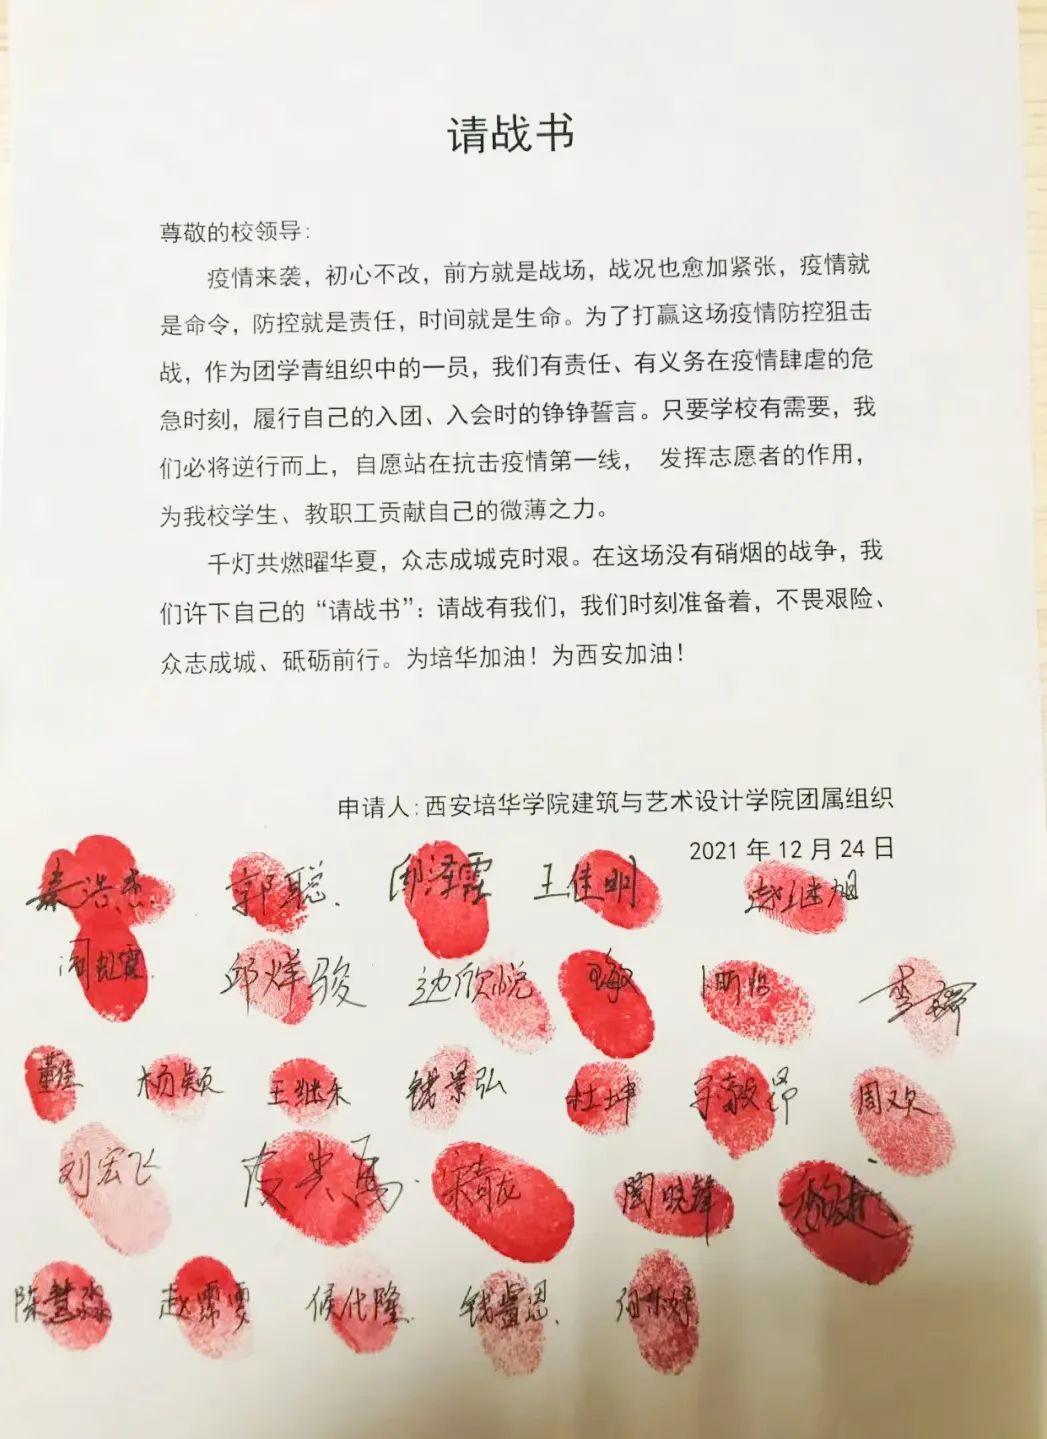 请战书
尊敬的校领导：
疫情来袭，初心不改，前方就是战场，战况也愈加紧张，疫情就
是命令，防控就是责任，时间就是生命。为了打赢这场疫情防控狙击
战，作为团学青组织中的一员，我们有责任、有义务在疫情肆虐的危
急时刻，履行自己的入团、入会时的铮铮誓言。只要学校有需要，我
们必将逆行而上，自愿站在抗击疫情第一线， 发挥志愿者的作用，
为我校学生、教职工贡献自己的微薄之力。
千灯共燃曜华夏，众志成城克时艰。在这场没有硝烟的战争，我
们许下自己的“请战书”：请战有我们，我们时刻准备着，不畏艰险、
众志成城、砥砺前行。为培华加油！为西安加油！
申请人：西安培华学院建筑与艺术设计学院团属组织
2021 年 12 月 24 日
秦浩杰 郭聪 王佳明 赵继旭
邱烊骏 边欣悦
董佳 杨颖 王继禾 钱景弘 杜坤 周欢
刘宏飞 陶晓锋
陈慧淼 赵霈雯 候代隆